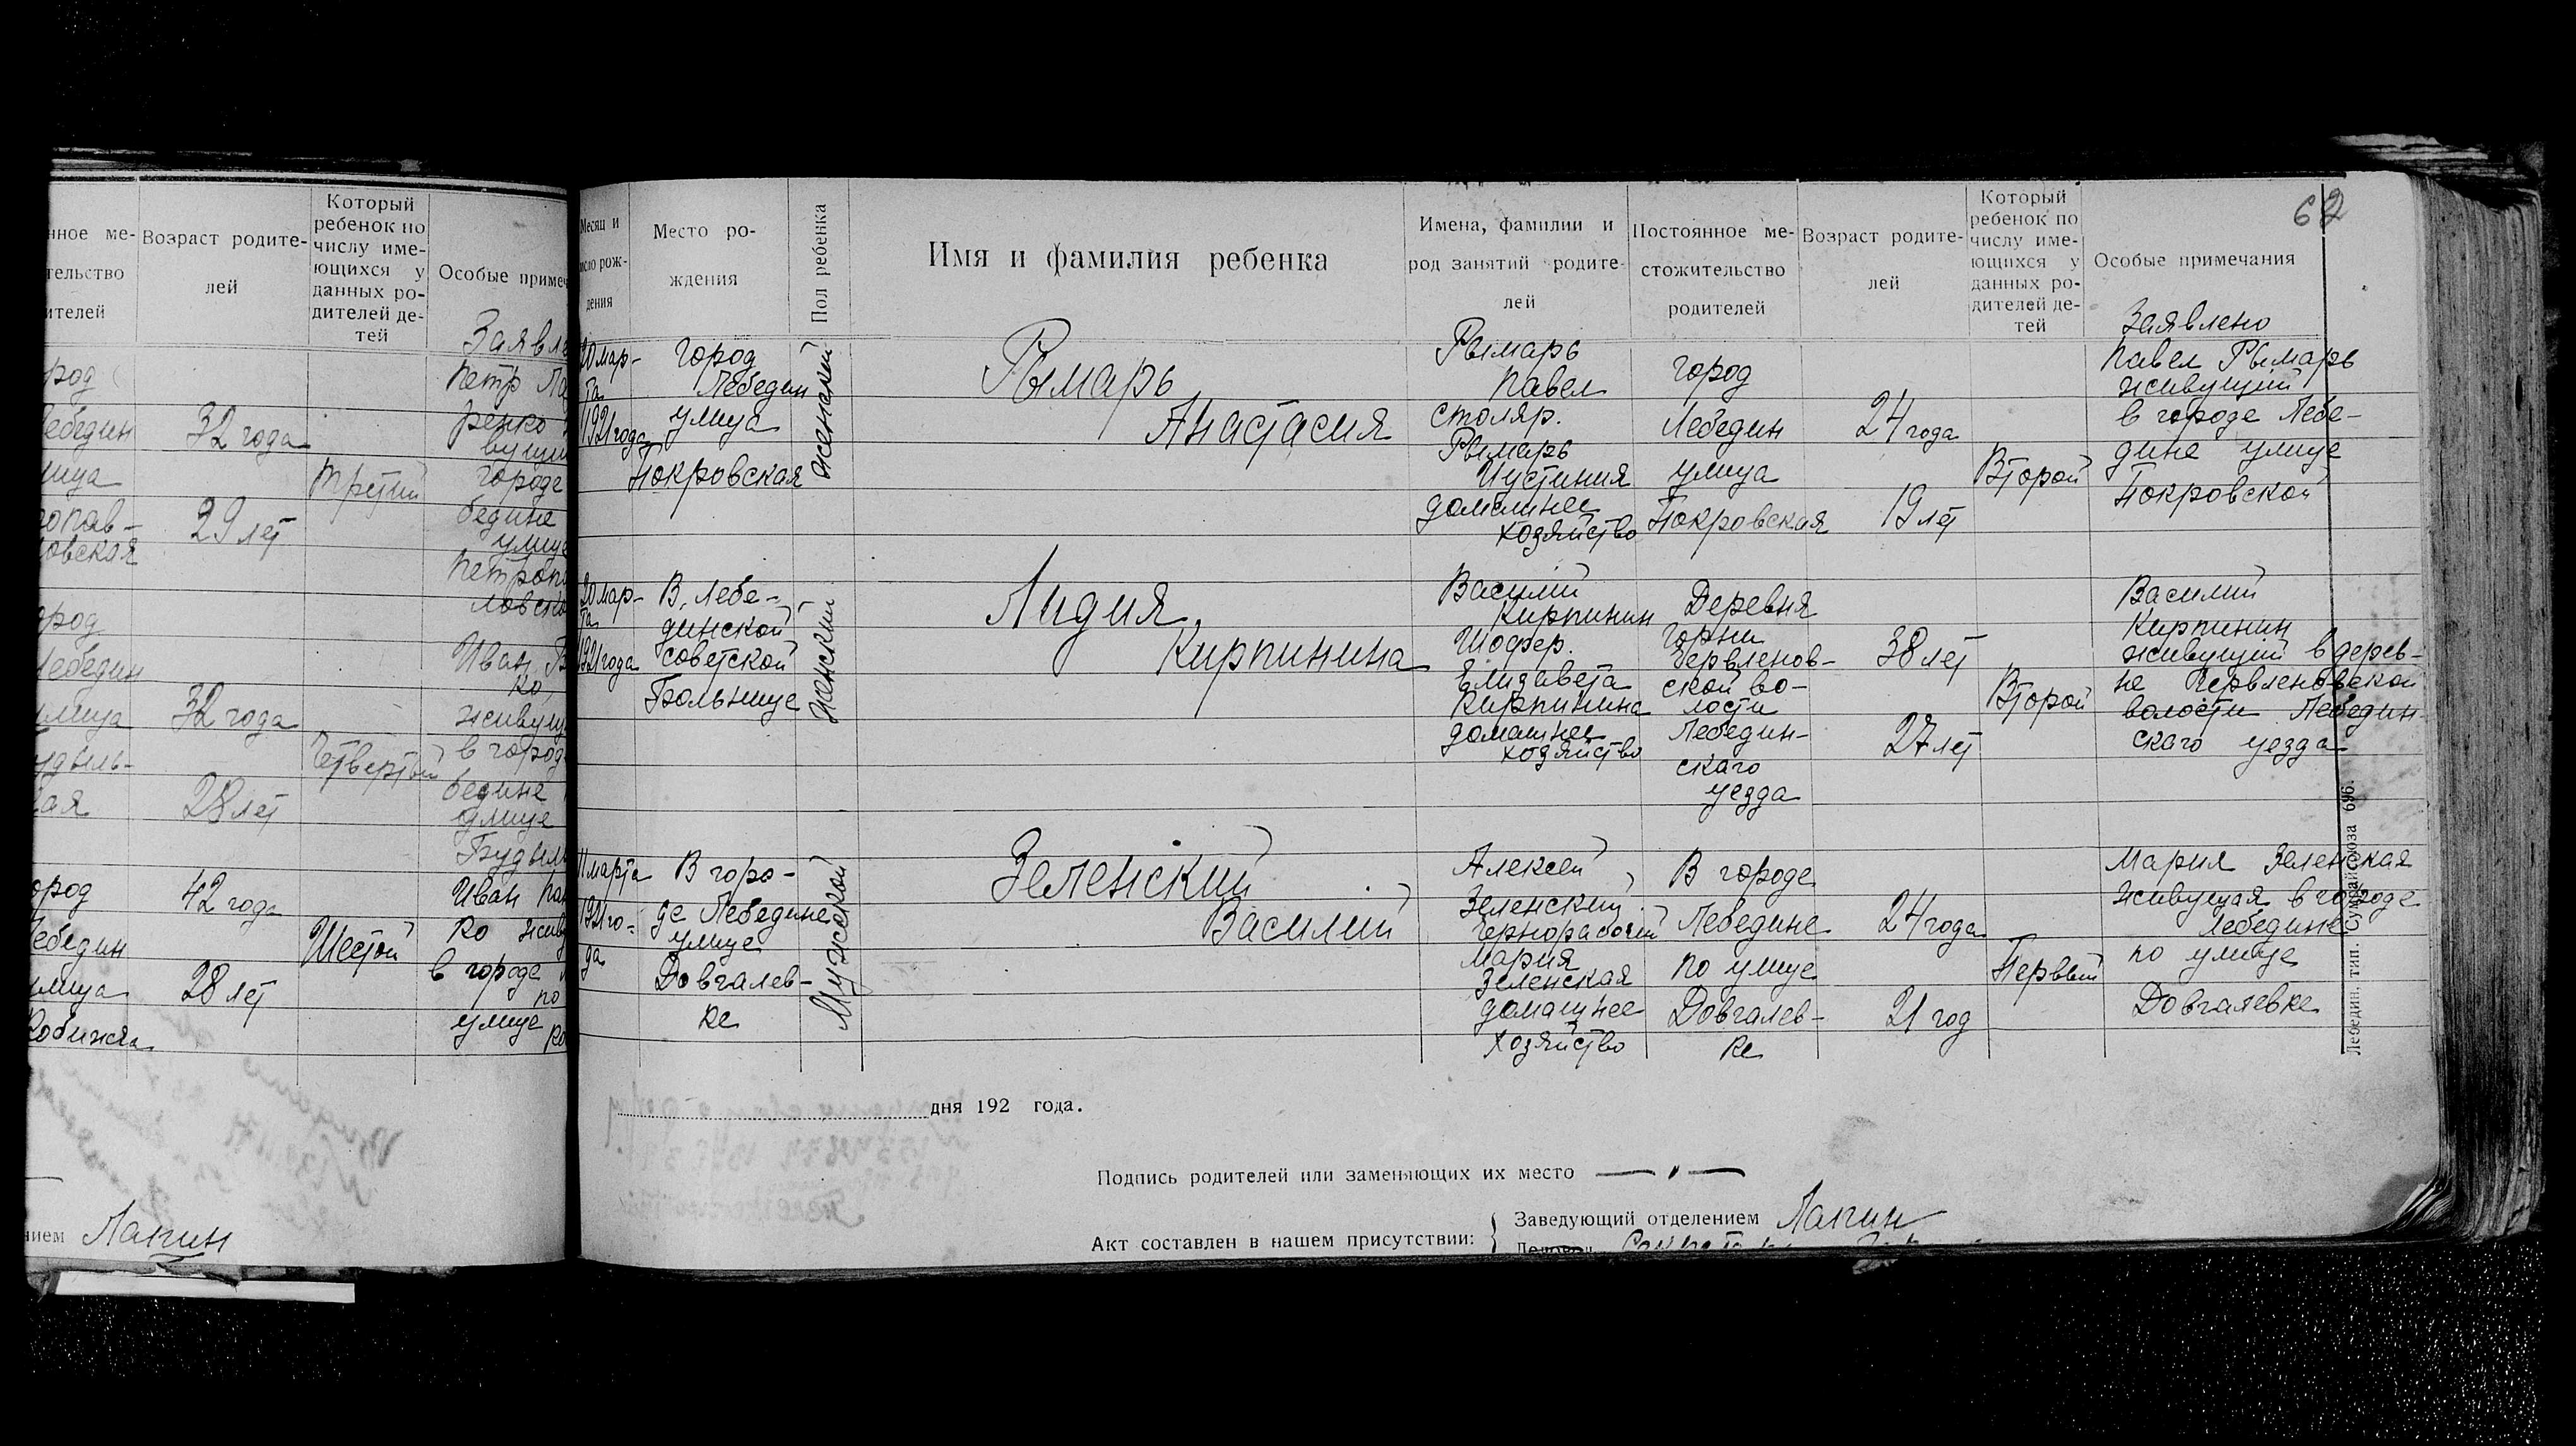 нное ме-
тельство
ителей
Возраст родите-
лей
Который
ребенок по
числу име-
ющихся у
данных ро-
дителей де-
тей
Особые примеч
Заявле
ород
Лебедин
лица
опав-
овская
32 года
29 лет
Третий
Петр Ла
ренко
вущи
городе
бедине
улице
Петроп
ловско
ород
Лебедин
улица
удыль-
кая
32 года
28 лет
Четвертый
Иван В
ко
живущ
в город
бедине
улице
Будыл
ород
Лебедин
улица
Кобижча
42 года
28 лет
Шестой
Иван Пан
ко живу
в городе
по
улице
Ко
нием Лапин
62
Месяц и
число рож-
дения
Место ро-
ждения
Пол ребенка
Имя и фамилия ребенка
Имена, фамилии и
род занятий родите-
лей
Постоянное ме-
стожительство
родителей
Возраст родите-
лей
Который
ребенок по
числу име-
ющихся у
данных ро-
дителей де-
тей
Особые примечания
Заявлено
20 мар-
та
1921 года
город
Лебедин
улица
Покровская
женский
Рымарь
Анастасия
Рымарь
Павел
столяр.
Рымарь
Иустиния
домашнее
хозяйство
город
Лебедин
улица
Покровская
24 года
19 лет
Второй
Павел Рымарь
живущий
в городе Лебе-
дине улице
Покровской
20 мар-
та
1921 года
В. Лебе-
динской
советской
Больнице
Женский
Лидия
Кирпинина
Василий
Кирпинин
Шофер.
Елизавета
Кирпинина
домашнее
хозяйство
Деревня
Горки
Червленов-
ской во-
лости
Лебедин-
скаго
уезда
38 лет
27 лет
Второй
Василий
Кирпинин
живущий в дерев-
не Червленовской
волости Лебедин-
скаго уезда
11 марта
1921 го-
да
В горо-
де Лебедине
улице
Довгалев-
ке
Мужской
Зеленский
Василий
Алексей
Зеленский
Чернорабочий
Мария
Зеленская
домашнее
хозяйство
В городе
Лебедине
по улице
Довгалев-
ке
24 года
21 год
Первый
Мария Зеленская
живущая в городе
Лебедине
по улице
Довгалевке
Лебедин. тип. Сумрайсоюза 696.
дня 192 года.
Подпись родителей или заменяющих их место — " —
Акт составлен в нашем присутствии:
Заведующий отделением Лапин